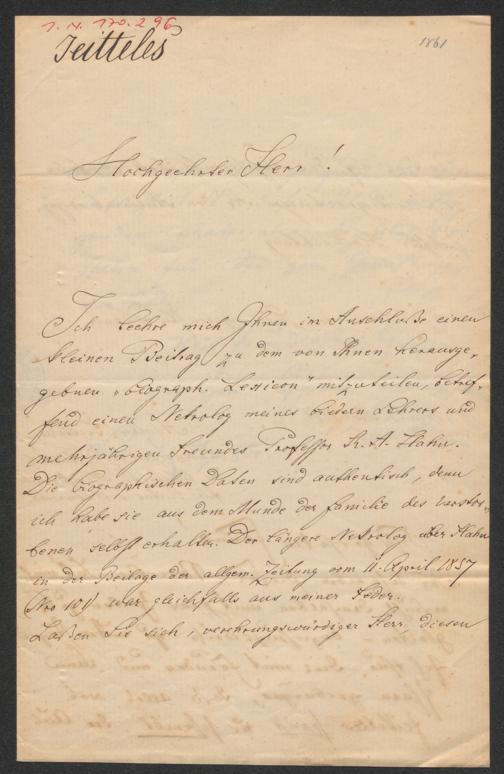 I. N. 170.296
Jeitteles
1861
Hochgeehrter Herr!
Ich beehre mich Ihnen im Anschluße einen
kleinen Beitrag zu dem von Ihnen herausge-
gebnen "biograph. Lexicon" mitzuteilen, betref-
fend einen Nekrolog meines biedern Lehrers und
mehrjährigen Freundes Professor K. A. Hahn.
Die biographischen Daten sind authentisch, denn
ich habe sie aus dem Munde der Familie des verstor-
benen selbst erhalten. Der längere Nekrolog über Hahn
in der Beilage der allgem. Zeitung vom 11. April 1857
(Nro 101) war gleichfalls aus meiner Feder.
Laßen Sie sich, verehrungswürdiger Herr, diesen